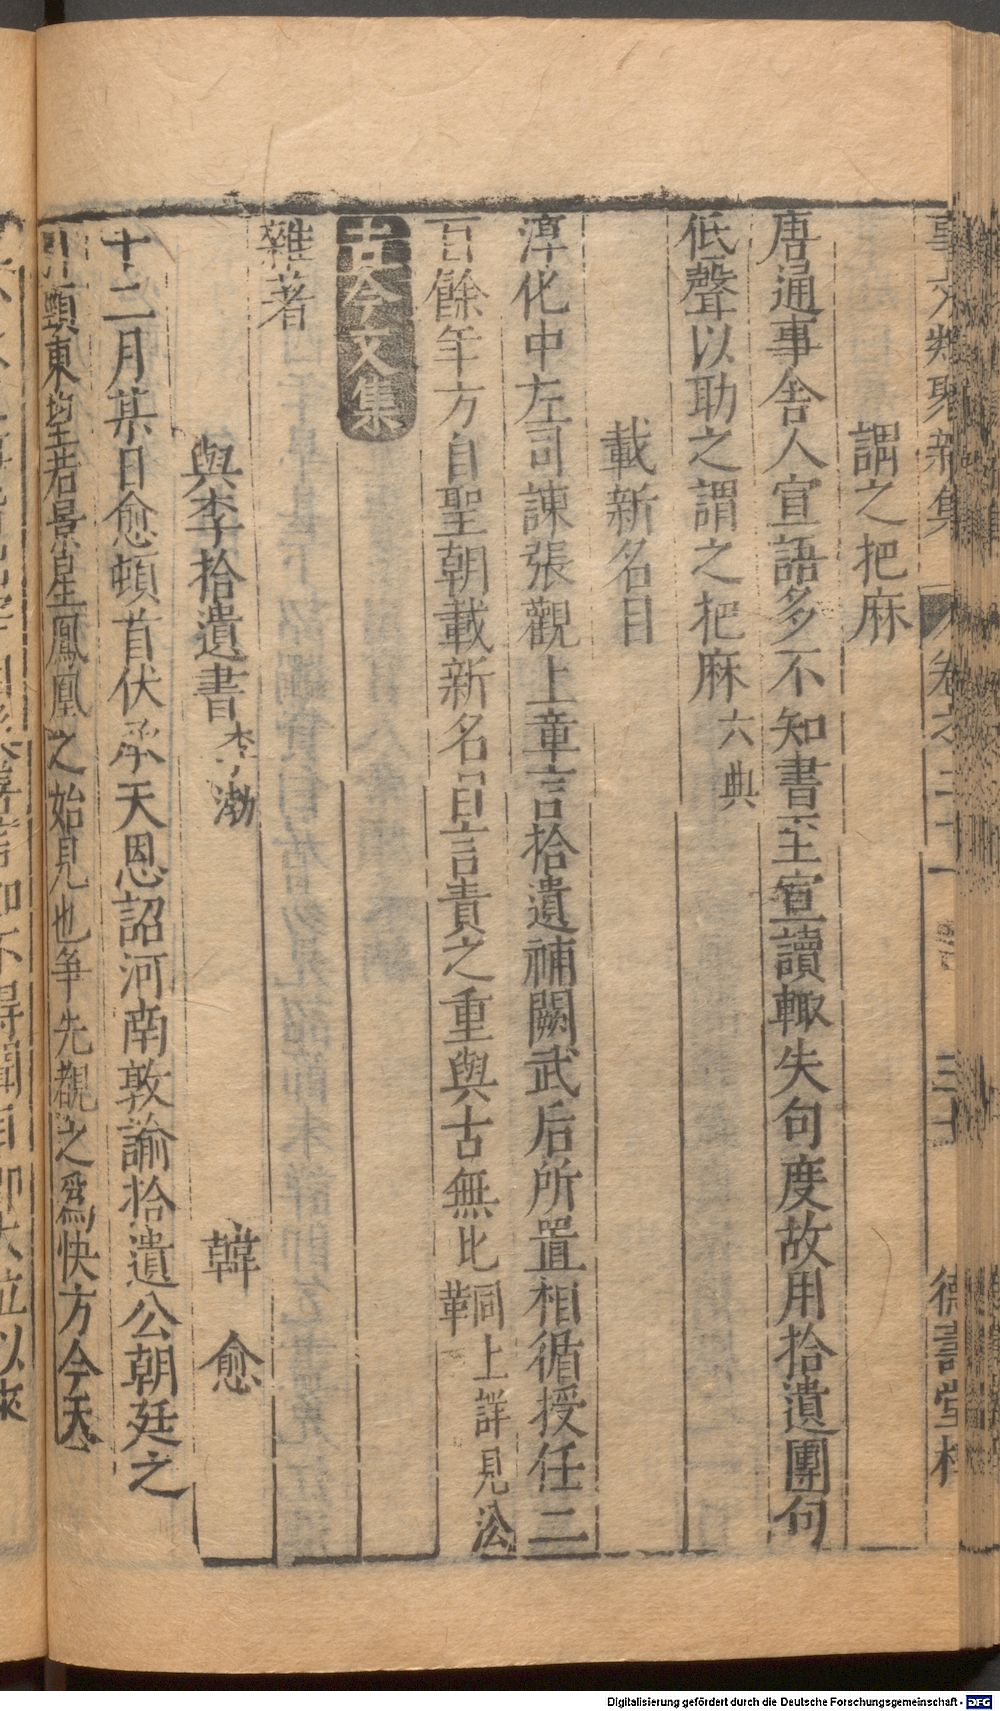 事文類聚新集 卷之三十一 三十 德壽堂梓
謂之把麻
唐通事舍人宣語多不知書至宣讀輙失句度故用拾遺團句
低聲以助之謂之把麻六典
載新名目
淳化中左司諫張觀上章言拾遺補闕武后所置相循授任二
百餘年方自聖朝載新名目言責之重與古無比同上詳見沿革
古今文集
雜著
與李拾遺書李渤 韓愈
十二月某日愈頓首伏承天恩詔河南敦諭拾遺公朝廷之
引頸東望若景星鳳凰之始見也爭先覩之爲快方今天
Digitalisierung gefördert durch die Deutsche Forschungsgemeinschaft - DFG